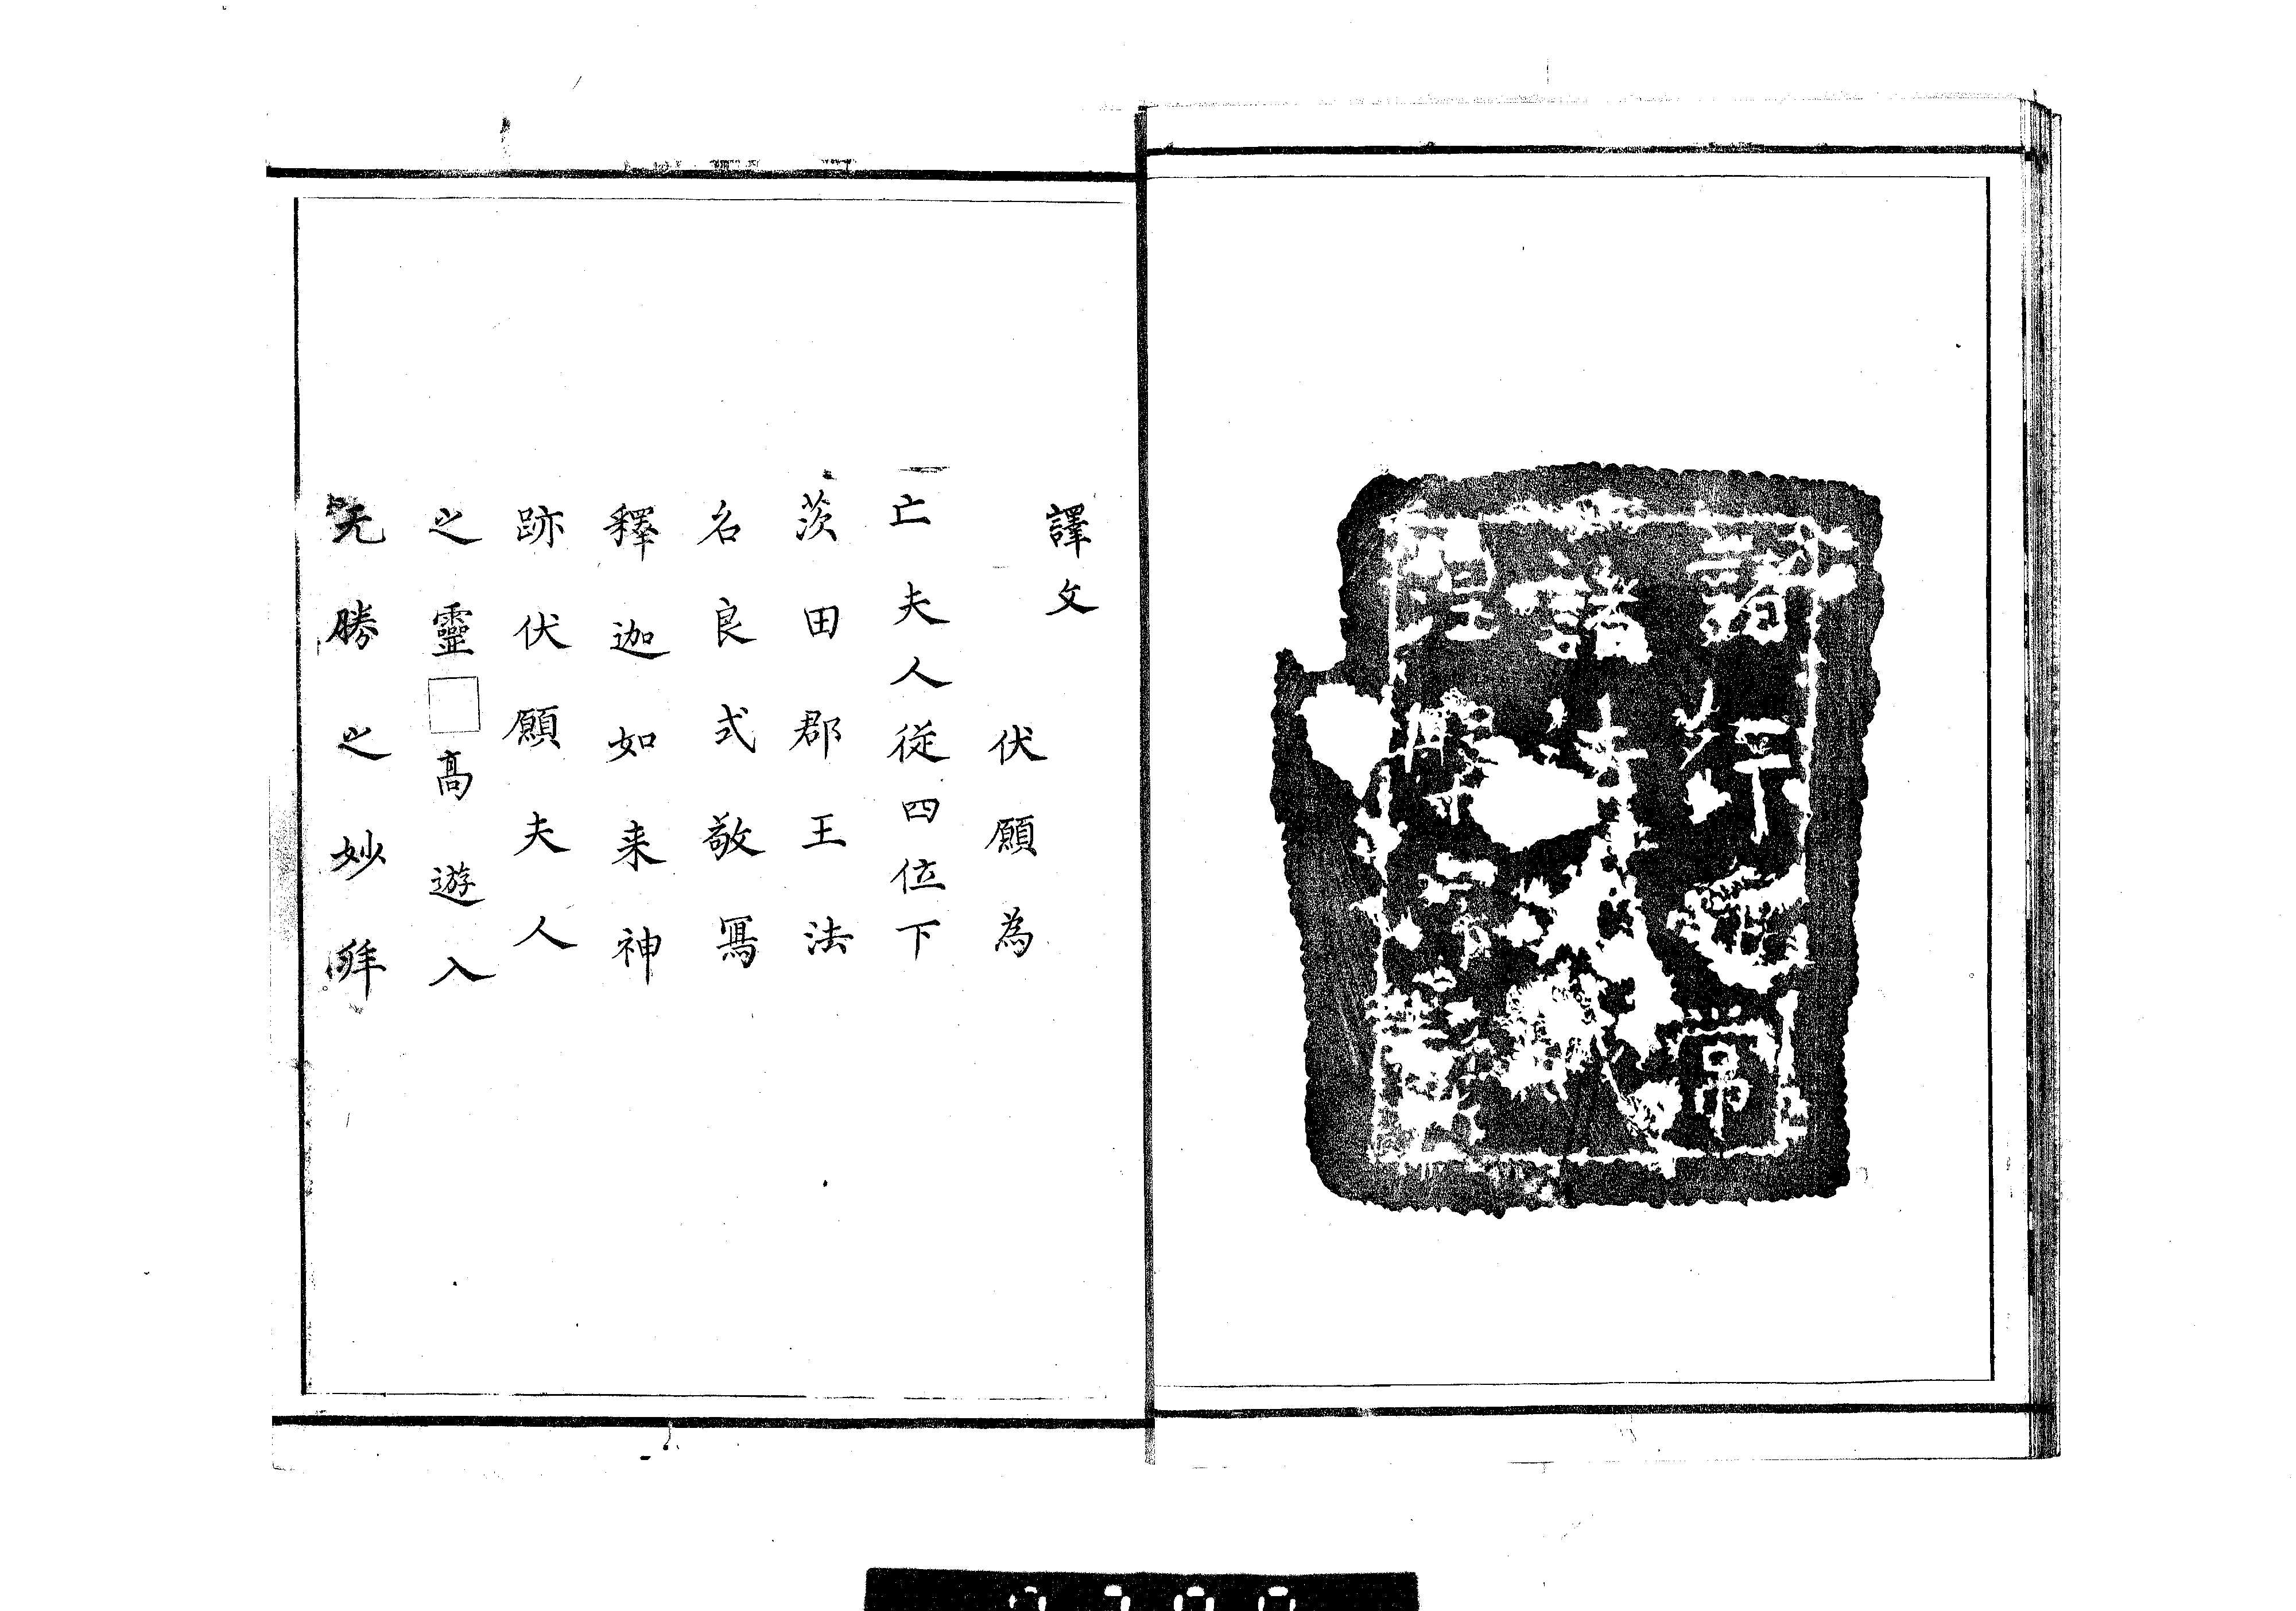 諸行無常
諸
涅槃寂
譯文
伏願為
亡夫人從四位下
茨田郡王法
名良式敬寫
釋迦如来神
跡伏願夫人
之靈□高遊入
无勝之妙